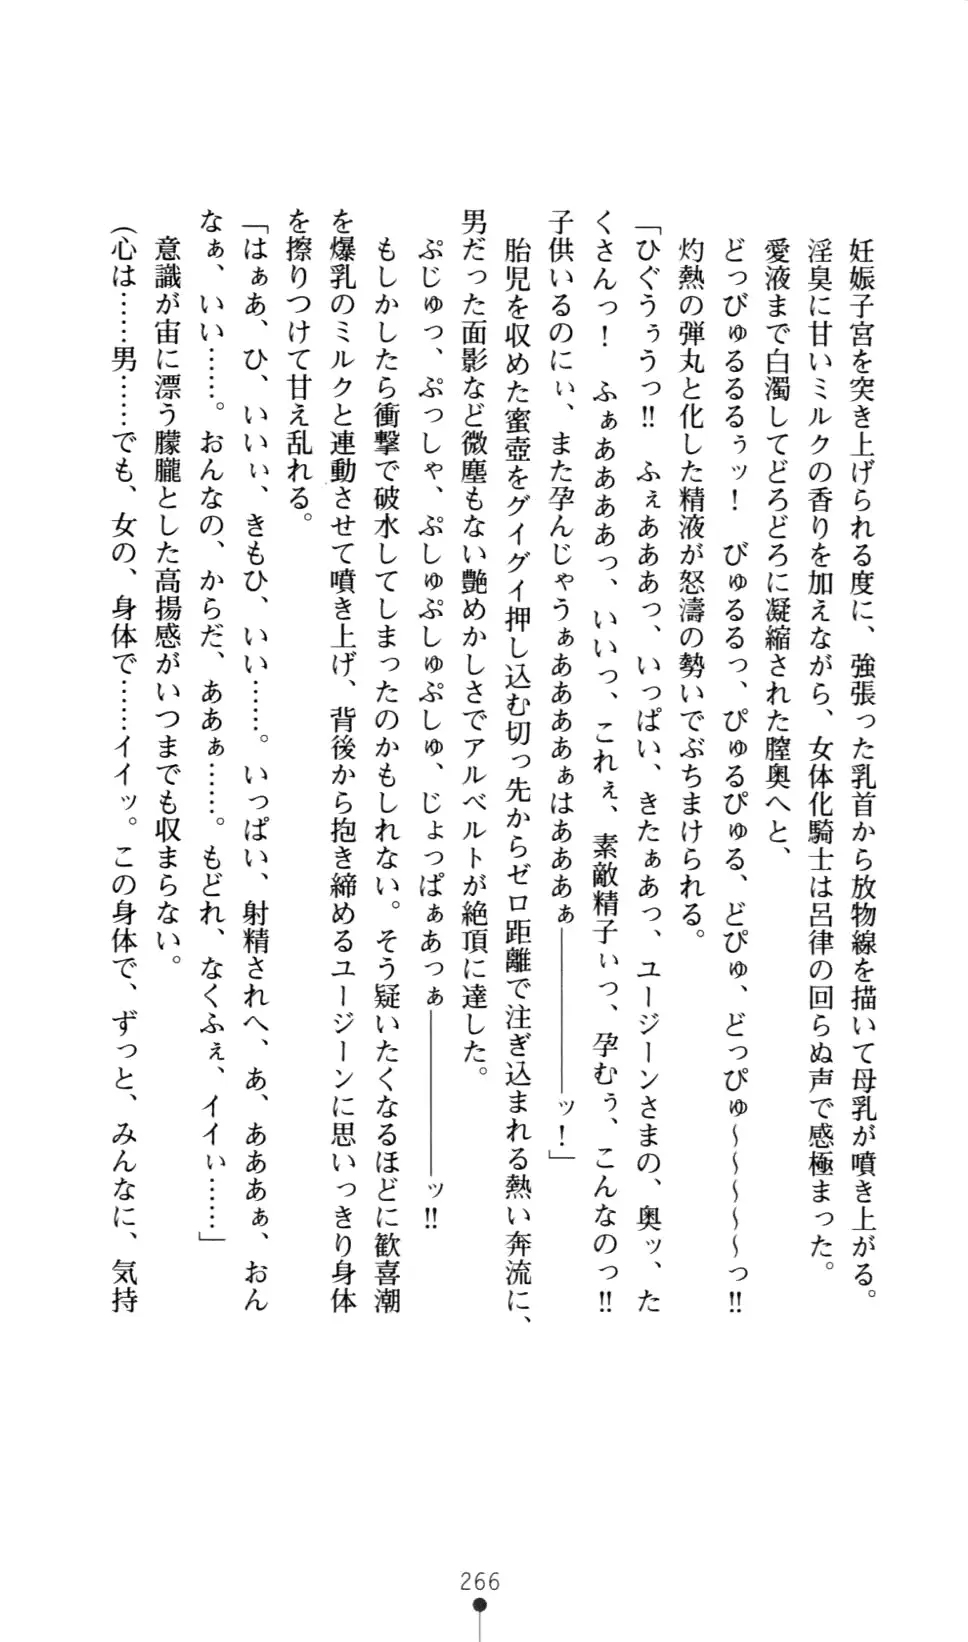 妊娠子宮を突き上げられる度に、強張った乳首から放物線を描いて母乳が噴き上がる。
淫臭に甘いミルクの香りを加えながら、女体化騎士は呂律の回らぬ声で感極まった。
愛液まで白濁してどろどろに凝縮された膣奥へと、
どっびゅるるるぅッ！　びゅるるっ、ぴゅるぴゅる、どぴゅ、どっぴゅ～～～～～っ!!
灼熱の弾丸と化した精液が怒濤の勢いでぶちまけられる。
「ひぐうぅうっ!!　ふぇあああっ、いっぱい、きたぁあっ、ユージーンさまの、奥ッ、た
くさんっ！　ふぁああああっ、いいっ、これぇ、素敵精子ぃっ、孕むぅ、こんなのっ!!
子供いるのにぃ、また孕んじゃうぁああああぁはあああぁ――――――ッ！」
胎児を収めた蜜壺をグイグイ押し込む切っ先からゼロ距離で注ぎ込まれる熱い奔流に、
男だった面影など微塵もない艶めかしさでアルベルトが絶頂に達した。
ぷじゅっ、ぷっしゃ、ぷしゅぷしゅぷしゅ、じょっぱぁあっぁ――――――ッ!!
もしかしたら衝撃で破水してしまったのかもしれない。そう疑いたくなるほどに歓喜潮
を爆乳のミルクと連動させて噴き上げ、背後から抱き締めるユージーンに思いっきり身体
を擦りつけて甘え乱れる。
「はぁあ、ひ、いいぃ、きもひ、いい……。いっぱい、射精されへ、あ、あああぁ、おん
なぁ、いい……。おんなの、からだ、ああぁ……。もどれ、なくふぇ、イイぃ……」
意識が宙に漂う朦朧とした高揚感がいつまでも収まらない。
（心は……男……でも、女の、身体で……イイッ。この身体で、ずっと、みんなに、気持
266